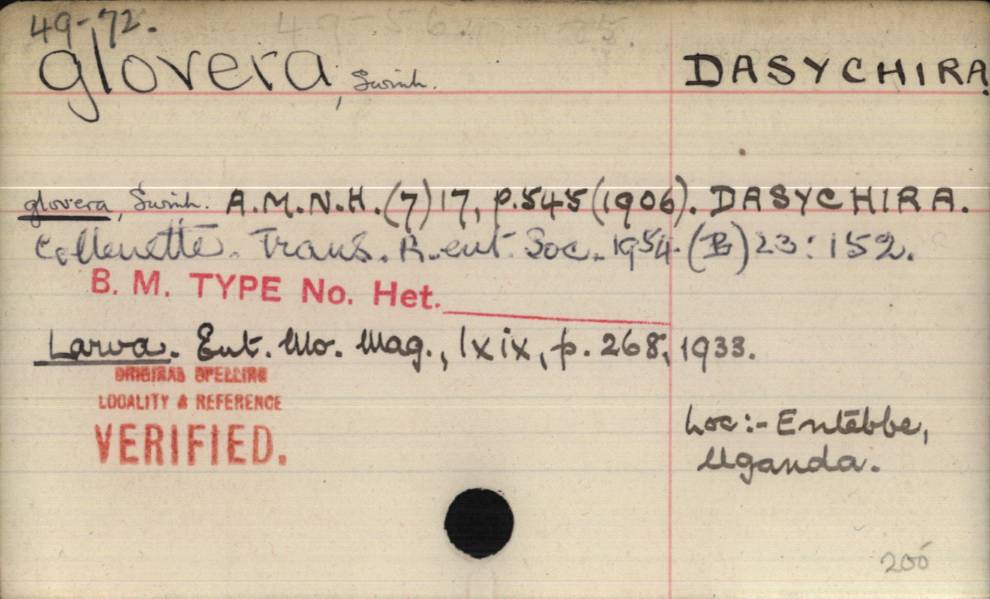 49-72.
glovera, Swinh. DASYCHIRA.
glovera, Swinh. A.M.N.H.(7)17, p.545(1906). DASYCHIRA.
Collenette. Trans. R. ent. Soc. 1954 (B) 23: 152.
B. M. TYPE No. Het.
Larva. Ent. Mo. Mag., lxix, p. 268, 1933.
ORIGINAL SPELLING
LOCALITY & REFERENCE
VERIFIED.
Loc:- Entebbe,
Uganda.